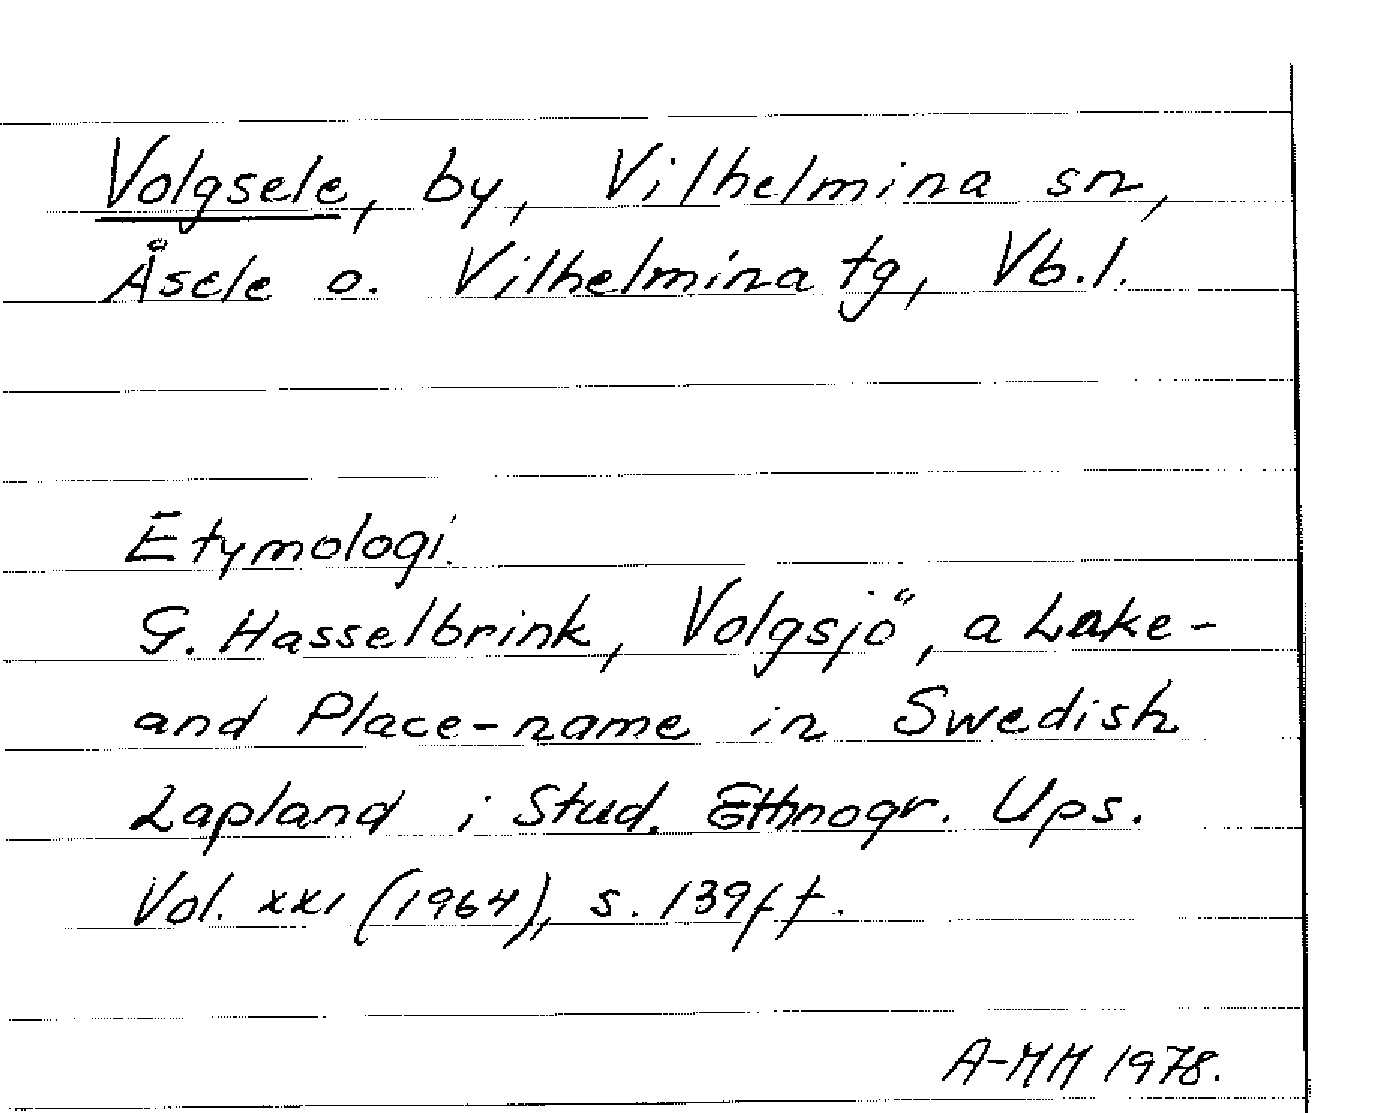 Volgsele, by, Vilhelmina sn,
Åsele o. Vilhelmina tg, Vb.l.
Etymologi.
G. Hasselbrink, Volgsjö, a Lake-
and Place-name in Swedish
Lapland i Stud. Ethnogr. Ups.
Vol. XXI (1964), s. 139 ff.
A-MM 1978.